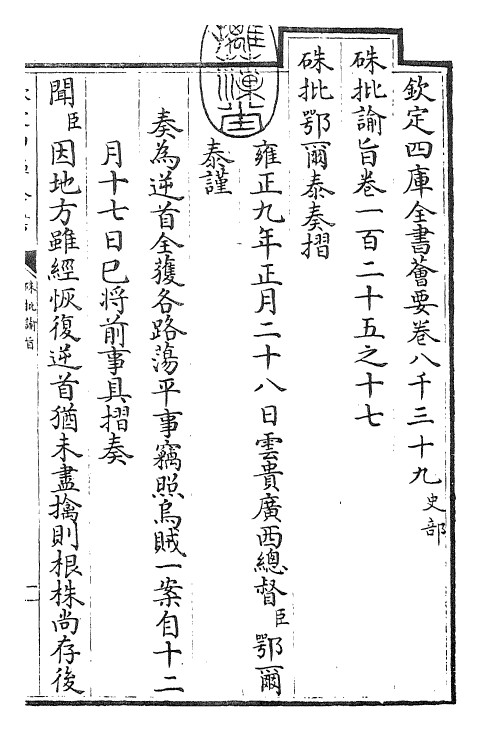 欽定四庫全書薈要卷八千三十九史部
硃批諭旨卷一百二十五之十七
硃批鄂爾泰奏摺
雍正九年正月二十八日雲貴廣西總督臣鄂爾
泰謹
奏為逆首全獲各路蕩平事竊照烏賊一案自十二
月十七日已將前事具摺奏
聞臣因地方雖經恢復逆首猶未盡擒則根株尚存後
硃批諭旨
一